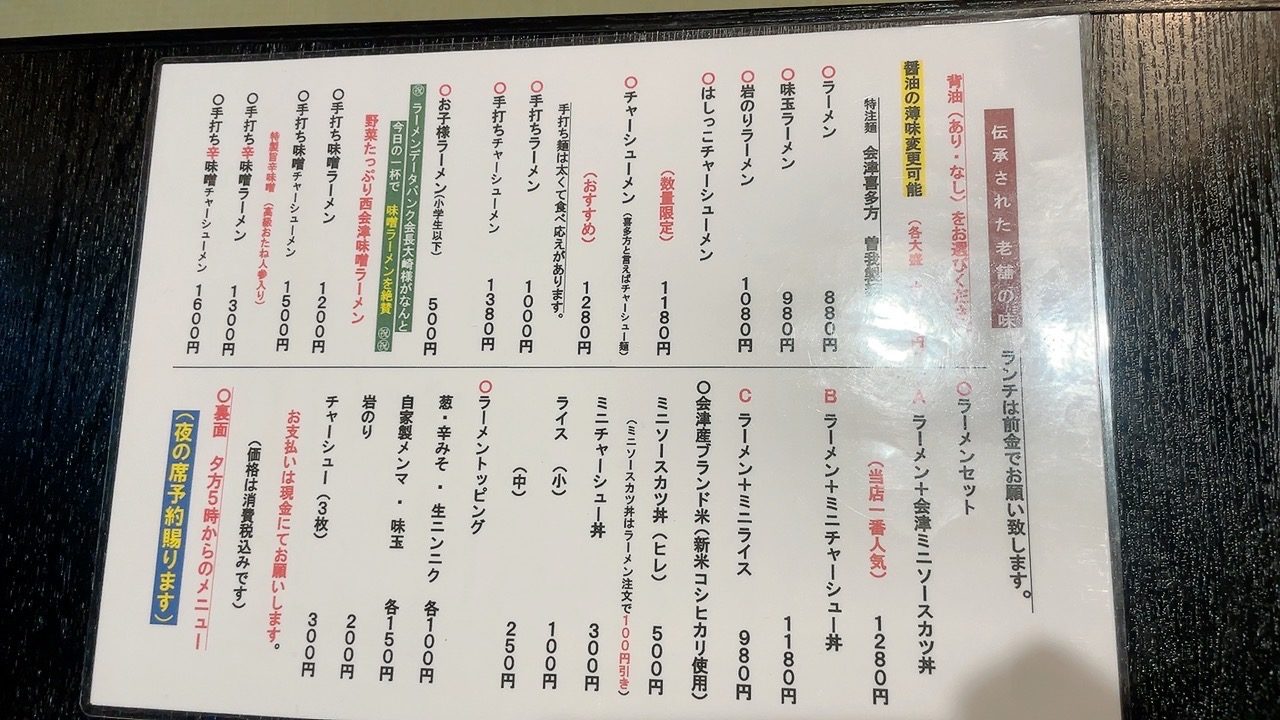 伝承された老舗の味
ランチは前金でお願い致します。
背油(あり・なし)をお選びくだ
醤油の薄味変更可能
(各大盛
円
特注麺 会津喜多方 曽我製
〇ラーメン 880円
〇味玉ラーメン 980円
〇岩のりラーメン 1080円
〇はしっこチャーシューメン
(数量限定) 1180円
〇チャーシューメン(喜多方と言えばチャーシュー麺)
(おすすめ) 1280円
手打ち麺は太くて食べ応えがあります。
〇手打ちラーメン 1000円
〇手打ちチャーシューメン 1380円
〇お子様ラーメン(小学生以下) 500円
㊗ ラーメンデータバンク会長大崎様がなんと
今日の一杯で 味噌ラーメンを絶賛 ㊗㊗
野菜たっぷり西会津味噌ラーメン
〇手打ち味噌ラーメン 1200円
〇手打ち味噌チャーシューメン 1500円
特製旨辛味噌(高級おたね人参入り)
〇手打ち辛味噌ラーメン 1300円
〇手打ち辛味噌チャーシューメン 1600円
〇ラーメンセット
A ラーメン+会津ミニソースカツ丼
(当店一番人気) 1280円
B ラーメン+ミニチャーシュー丼
1180円
C ラーメン+ミニライス 980円
〇会津産ブランド米(新米コシヒカリ使用)
ミニソースカツ丼(ヒレ) 500円
(ミニソースカツ丼はラーメン注文で100円引き)
ミニチャーシュー丼 300円
ライス (小) 100円
(中) 250円
〇ラーメントッピング
葱・辛みそ・生ニンニク 各100円
自家製メンマ・味玉 各150円
岩のり 200円
チャーシュー(3枚) 300円
お支払いは現金にてお願いします。
(価格は消費税込みです)
〇裏面 夕方5時からのメニュー
(夜の席予約賜ります)